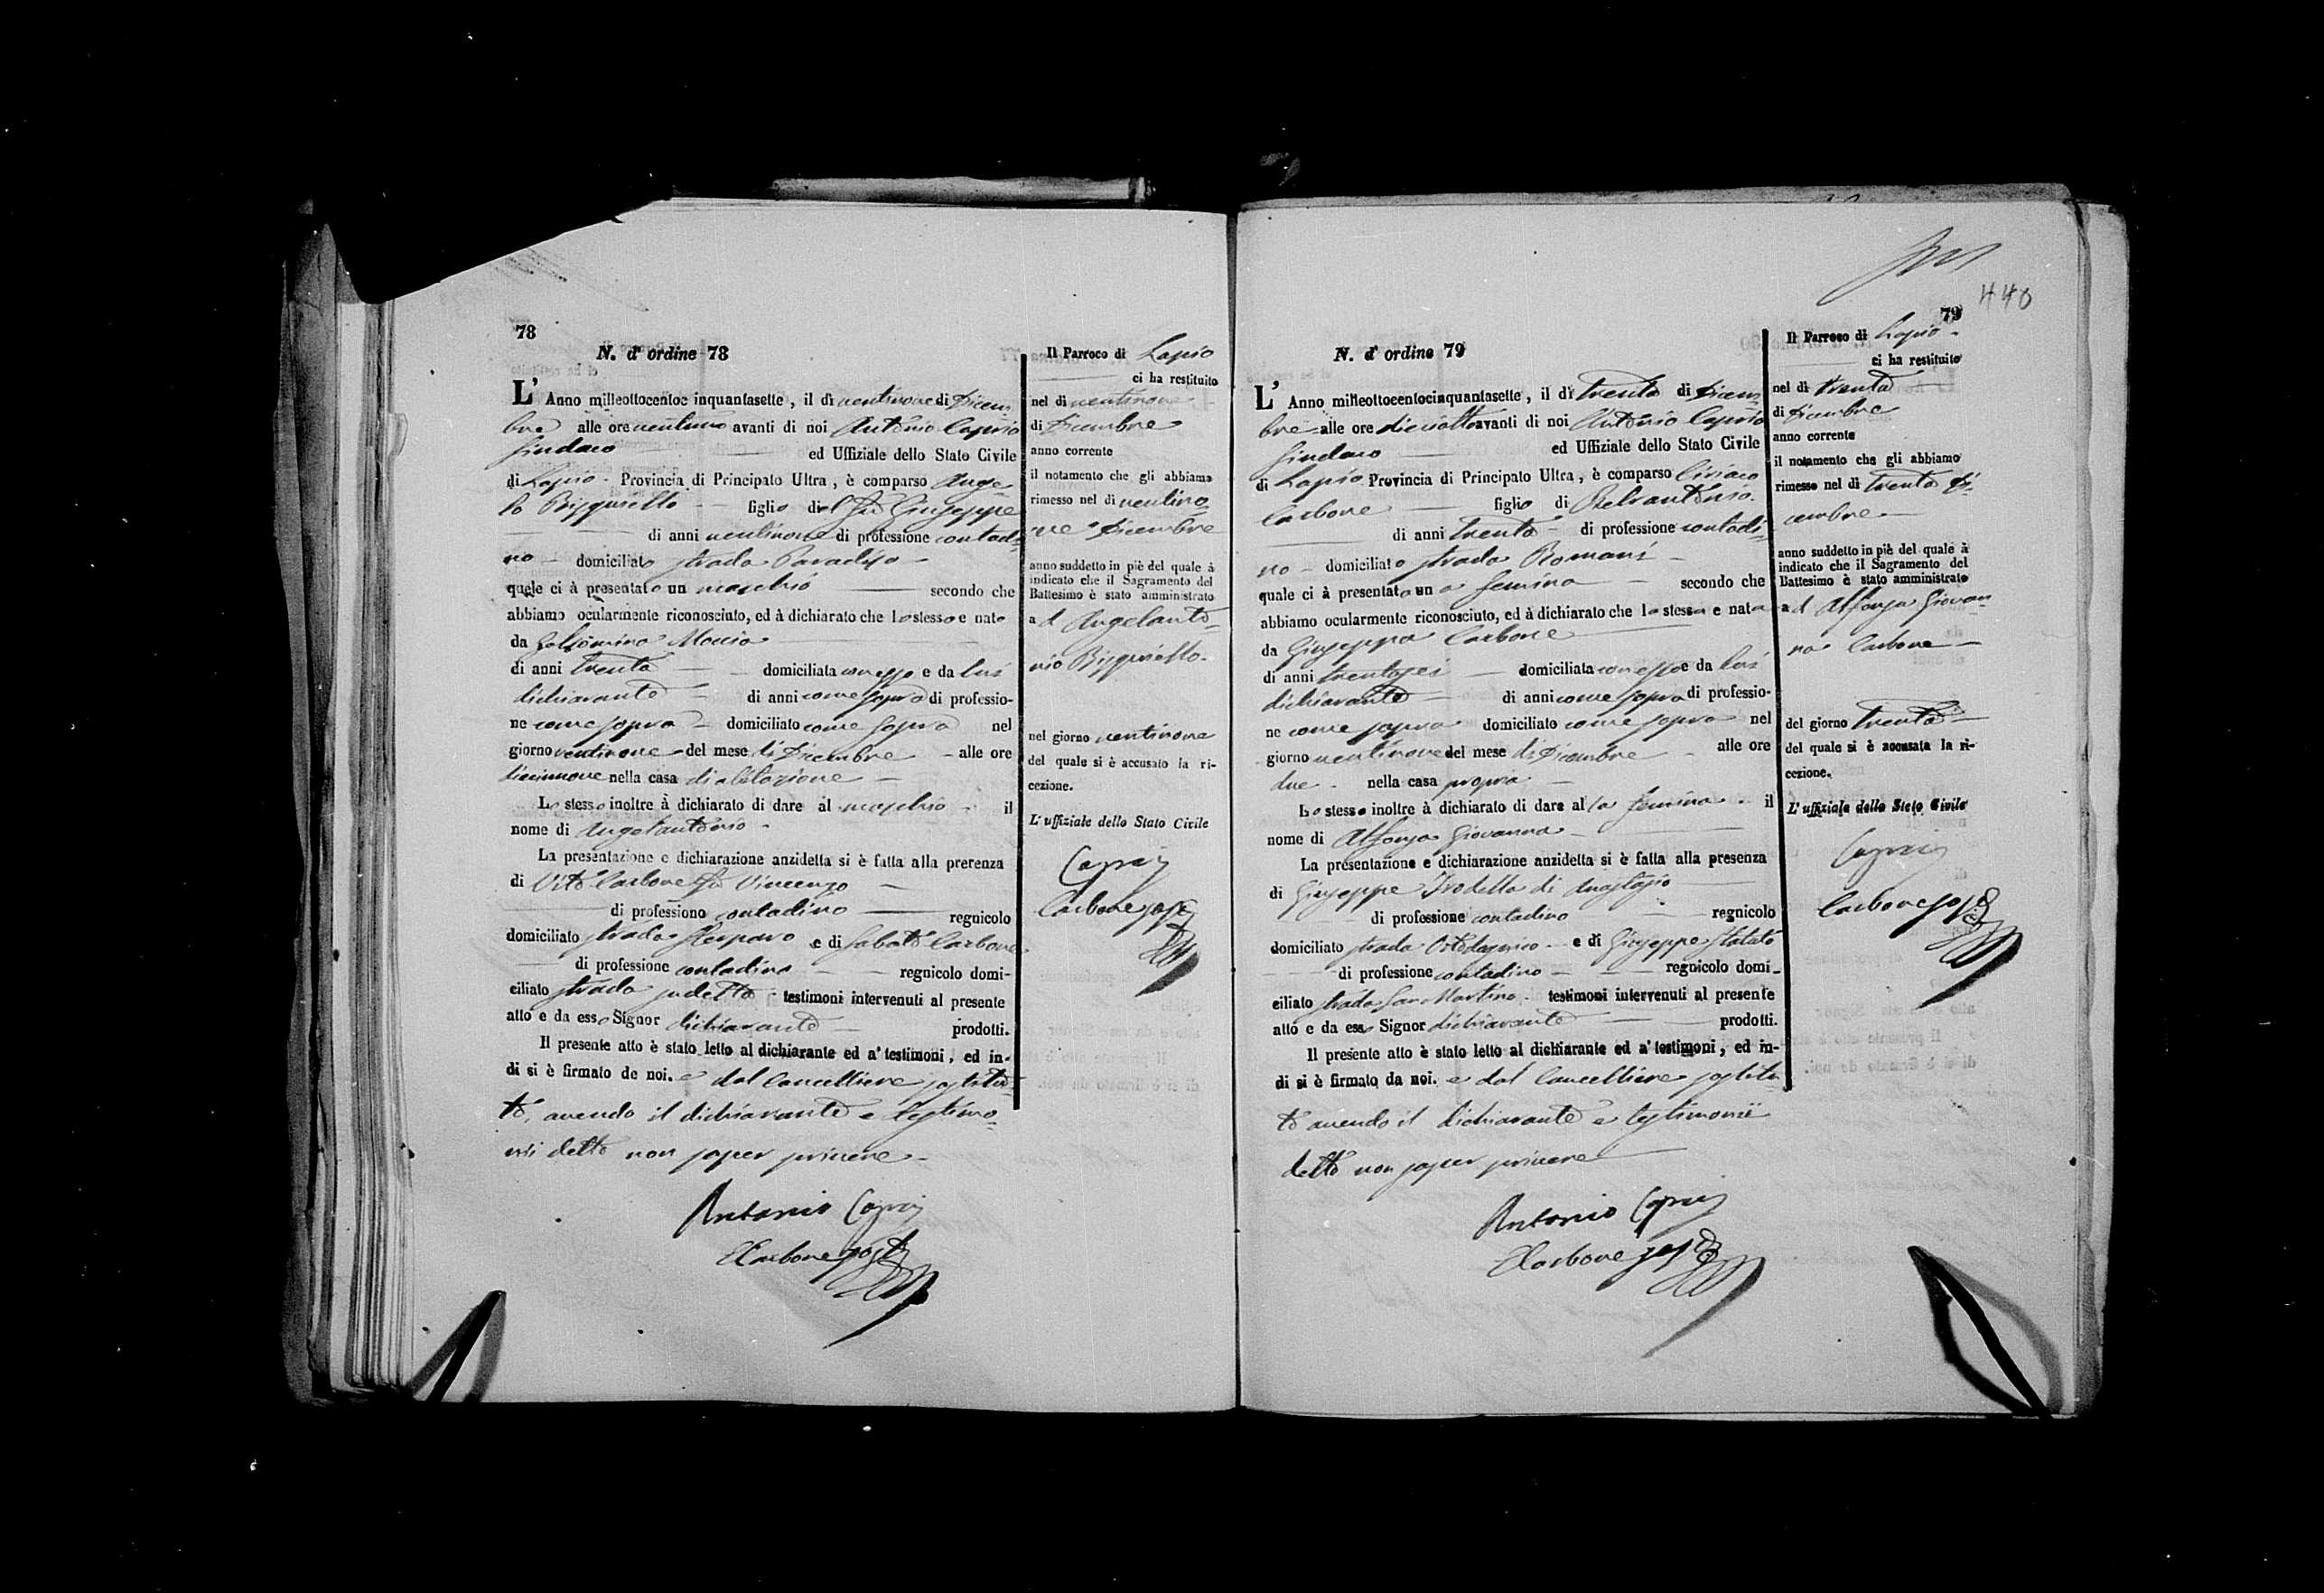 78
N. d'ordine 78
L' Anno milleottocentoc inquantasette, il dì ventinove di Dicem
bre alle ore ventuno avanti di noi Antonio Caprio
Sindaco ed Uffiziale dello Stato Civile
di Lapio Provincia di Principato Ultra, è comparso Ange
lo figlio del fù Giuseppe
di anni ventinove di professione contadi
no domiciliato strada Paradiso
quale ci à presentato un maschio secondo che
abbiamo ocularmente riconosciuto, ed à dichiarato che lo stesso e nato
da Gelsomina
di anni trenta domiciliata con esso e da lui
dichiarante di anni come sopra di professio-
ne come sopra domiciliato come sopra nel
giorno ventinove del mese di Dicembre alle ore
diecinnove nella casa di abitazione
Lo stesso inoltre à dichiarato di dare al maschio il
nome di Angelantonio
La presentazione e dichiarazione anzidetta si è fatta alla prerenza
di Vito Carbone fù Vincenzo
di professiono contadino regnicolo
domiciliato strada e di Sabato Carbone
di professione contadino regnicolo domi-
ciliato strada sudetta testimoni intervenuti al presente
atto e da esso Signor dichiarante prodotti.
Il presente atto è stato letto al dichiarante ed a' testimoni, ed in-
di si è firmato de noi. e dal Cancelliere sostitu
to, avendo il dichiarante e testimo
nii detto non saper scrivere
Antonio Caprio
Carbone sost
Il Parroco di Lapio
ci ha restituito
nel di ventinove
di Dicembre
anno corrente
il notamento che gli abbiamo
rimesso nel di ventino
ve Dicembre
anno suddetto in piè del quale à
indicato che il Sagramento del
Battesimo è stato amministrato
ad Angelanto
nio
nel giorno ventinove
del quale si è accusato la ri-
cezione.
L'uffiziale dello Stato Civile
Caprio
Carbone sost
440
79
N. d'ordine 79
L' Anno milleottocentocinquantasette, il dì trenta di Dicem
bre alle ore dieciotto avanti di noi Antonio Caprio
Sindaco ed Uffiziale dello Stato Civile
di Lapio Provincia di Principato Ultra, è comparso Ciriaco
Carbone figlio di Pietrantonio
di anni trenta di professione contadi
no domiciliato strada Romani
quale ci à presentato una femina secondo che
abbiamo ocularmente riconosciuto, ed à dichiarato che la stessa e nata
da Giuseppa Carbone
di anni trentasei domiciliata con esso e da lui
dichiarante di anni come sopra di professio-
ne come sopra domiciliato come sopra nel
giorno ventinove del mese di Dicembre alle ore
due nella casa propria
Lo stesso inoltre à dichiarato di dare alla femina il
nome di Alfonsa Giovanna
La presentazione e dichiarazione anzidetta si è fatta alla presenza
di Giuseppe Trodella di Anastasio
di professione contadino regnicolo
domiciliato strada e di Giuseppe
di professione contadino regnicolo domi-
ciliato strada San Martino testimoni intervenuti al presente
atto e da esso Signor dichiarante prodotti.
Il presente atto è stato letto al dichiarante ed a' testimoni, ed in-
di si è firmato da noi. e dal Cancelliere sostitu
to avendo il dichiarante e testimonii
detto non saper scrivere
Antonio Caprio
Carbone sost
Il Parroco di Lapio
ci ha restituito
nel di trenta
di Dicembre
anno corrente
il notamento che gli abbiamo
rimesso nel di trenta Di
cembre
anno suddetto in piè del quale à
indicato che il Sagramento del
Battesimo è stato amministrato
ad Alfonsa Giovan
na Carbone
del giorno trenta
del quale si è accusata la ri-
cezione.
L'uffiziale dello Stato Civile
Caprio
Carbone sost